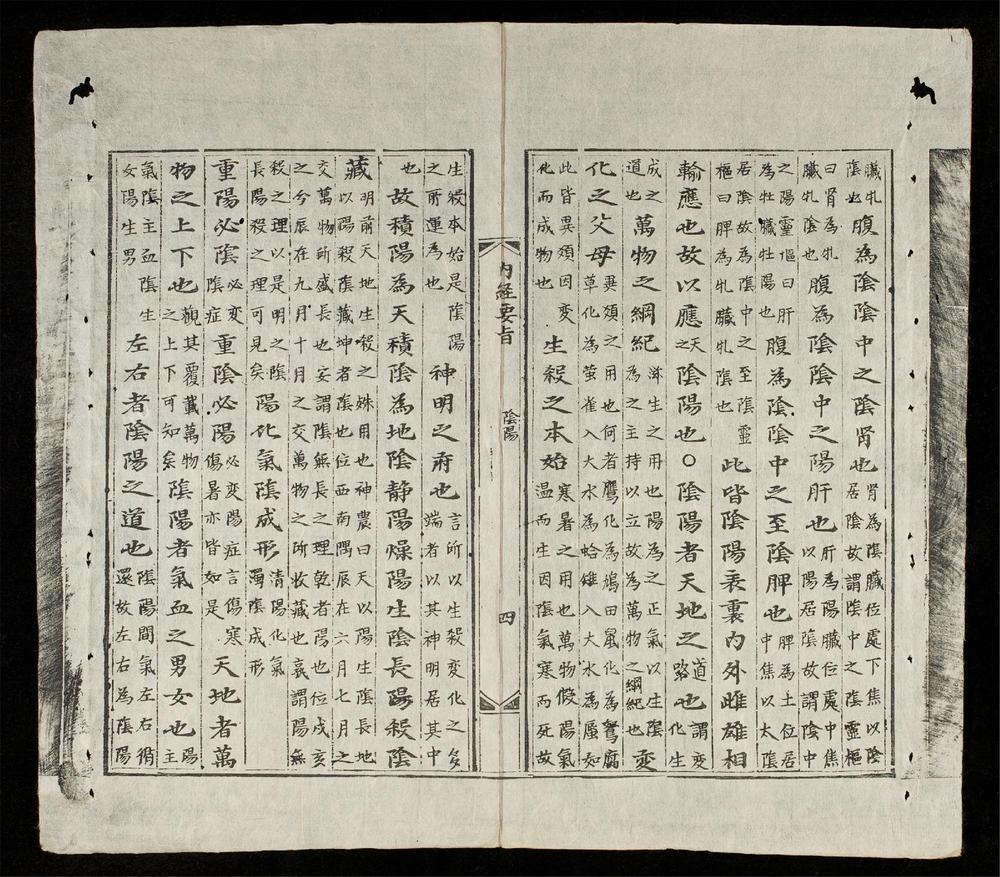 臟牝陰也腹為陰陰中之陰腎也腎為陰臟位處下焦以陰居陰故謂陰中之陰靈樞
曰腎為牝臟牝陰也腹為陰陰中之陽肝也肝為陽臟位處中焦以陽居陰故謂陰中
之陽靈樞曰肝為牡臟牡陽也腹為陰陰中之至陰脾也脾為土位居中焦以太陰
居陰故為陰中之至陰靈樞曰脾為牝臟牝陰也此皆陰陽表裏内外雌雄相
輸應也故以應天之陰陽也○陰陽者天地之道路也謂変化生
成之道也萬物之綱紀滋生之用也陽為之正氣以生陰為之主持以立故為萬物之綱紀也変
化之父母異類之用也何者鷹化為鳩田鼠化為鴽腐草化為萤雀入大水為蛤雉入大水為蜃如
此皆異類因変化而成物也生殺之本始寒暑之用也萬物假陽氣温而生因陰氣寒而死故
内経要旨 陰陽 四
生殺本始是陰陽之所運為也神明之府也言所以生殺変化之多端者以其神明居其中
也故積陽為天積陰為地陰静陽燥陽生陰長陽殺陰
藏明前天地生殺之殊用也神農曰天以陽生陰長地以陽殺陰藏坤者陰也位西南隅辰在六月七月之
交萬物所盛長也安謂陰無長之理乾者陽也位戌亥之今辰在九月十月之交萬物之所收藏也哀謂陽無
殺之理以是明之陰長陽殺之理可見矣陽化氣陰成形清陽化氣濁陰成形
重陽必陰必変陰症重陰必陽必変陽症言傷寒傷暑亦皆如是天地者萬
物之上下也觀其覆藏萬物之上下可知矣陰陽者氣血之男女也陽主
氣陰主血陰生女陽生男左右者陰陽之道也陰陽間氣左右循還故左右為陰陽